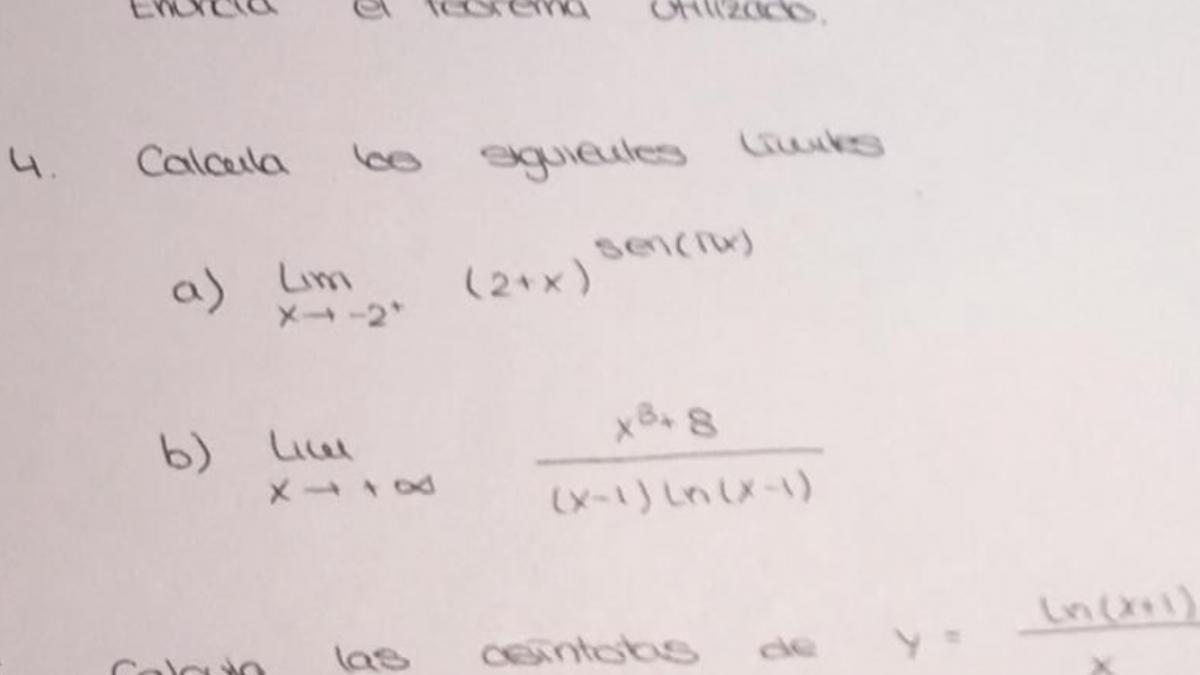 Enuncia el teorema utilizado.
4. Calcula los siguientes límites
a) Lim (2+x)^sen(πx)
x→-2⁺
b) Lim x⁸+8
x→+∞ (x-1) Ln(x-1)
Calcula las asíntotas de y = Ln(x+1)
x